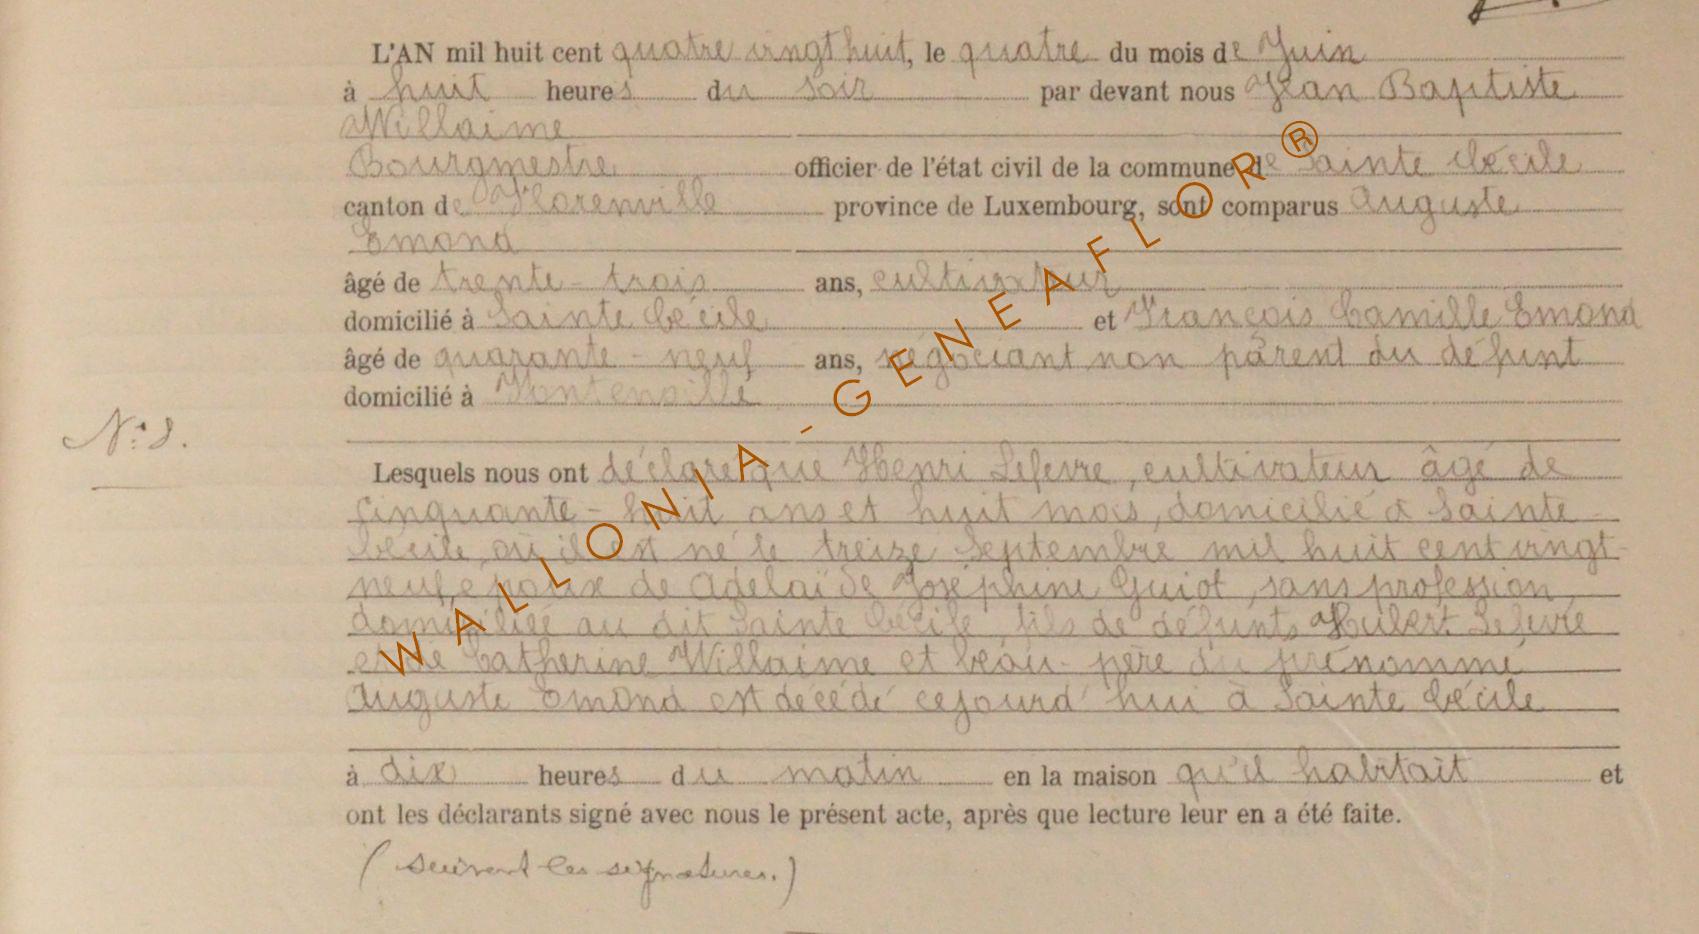 L'AN mil huit cent quatre vingt huit, le quatre du mois de Juin
à huit heures du soir par devant nous Jean Baptiste
Willaime
Bourgmestre officier de l'état civil de la commune de Sainte Cécile
canton de Florenville province de Luxembourg, sont comparus Auguste
Emond
âgé de trente-trois ans, cultivateur
domicilié à Sainte Cécile et François Camille Emond
âgé de quarante-neuf ans, négociant non parent du défunt
domicilié à Fontenoille
N° 8.
Lesquels nous ont déclaré que Henri Lefevre, cultivateur âgé de
cinquante-huit ans et huit mois, domicilié à Sainte
Cécile, où il est né le treize Septembre mil huit cent vingt-
neuf, époux de Adelaïde Joséphine Guiot, sans profession,
domiciliée au dit Sainte Cécile, fils de défunts Hubert Lefevre
et de Catherine Willaime et beau-père du prénommé
Auguste Emond est décédé cejourd'hui à Sainte Cécile
à dix heures du matin en la maison qu'il habitait et
ont les déclarants signé avec nous le présent acte, après que lecture leur en a été faite.
(suivent les signatures.)
WALLONIA-GENEAFLOR®